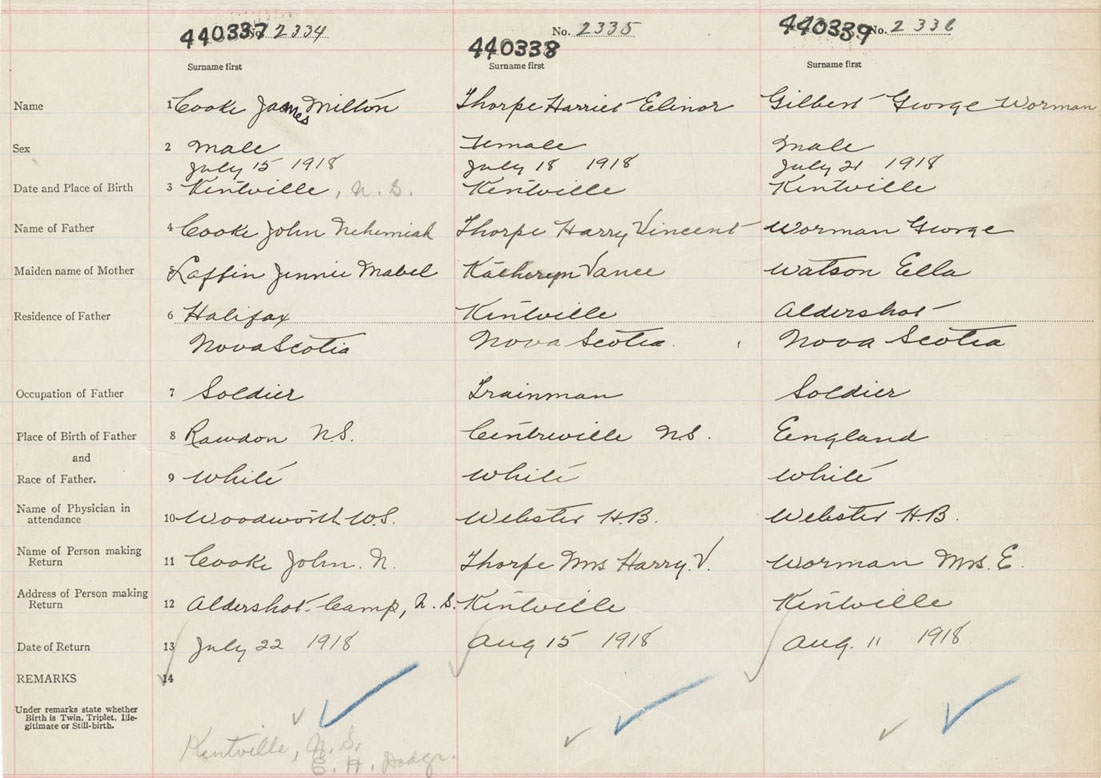 440337 2334 No. 2335 440339 No. 2336
440338
Surname first Surname first Surname first
Name 1 Cooke James Milton Thorpe Harriet Eelinor Gilbert George Worman
Sex 2 Male Female Male
July 15 1918 July 18 1918 July 21 1918
Date and Place of Birth 3 Kentville, N.S. Kentville Kentville
Name of Father 4 Cooke John Nehemiah Thorpe Harry Vincent Worman George
Maiden name of Mother 5 Laffin Jennie Mabel Katheryn Vance Watson Ella
Residence of Father 6 Halifax Kentville Aldershot
Nova Scotia Nova Scotia. Nova Scotia
Occupation of Father 7 Soldier Trainman Soldier
Place of Birth of Father 8 Rawdon NS. Centreville NS. England
and
Race of Father. 9 White White White
Name of Physician in
attendance 10 Woodworth W.S. Webster H.B. Webster H.B.
Name of Person making
Return 11 Cooke John. N. Thorpe Mrs Harry. V. Worman Mrs. E.
Address of Person making
Return 12 Aldershot Camp, N.S. Kentville Kentville
Date of Return 13 July 22 1918 Aug 15 1918 Aug. 11 1918
REMARKS 14
Under remarks state whether
Birth is Twin, Triplet, Ille-
gitimate or Still-birth.
Kentville, N.S.
H. Dodge.